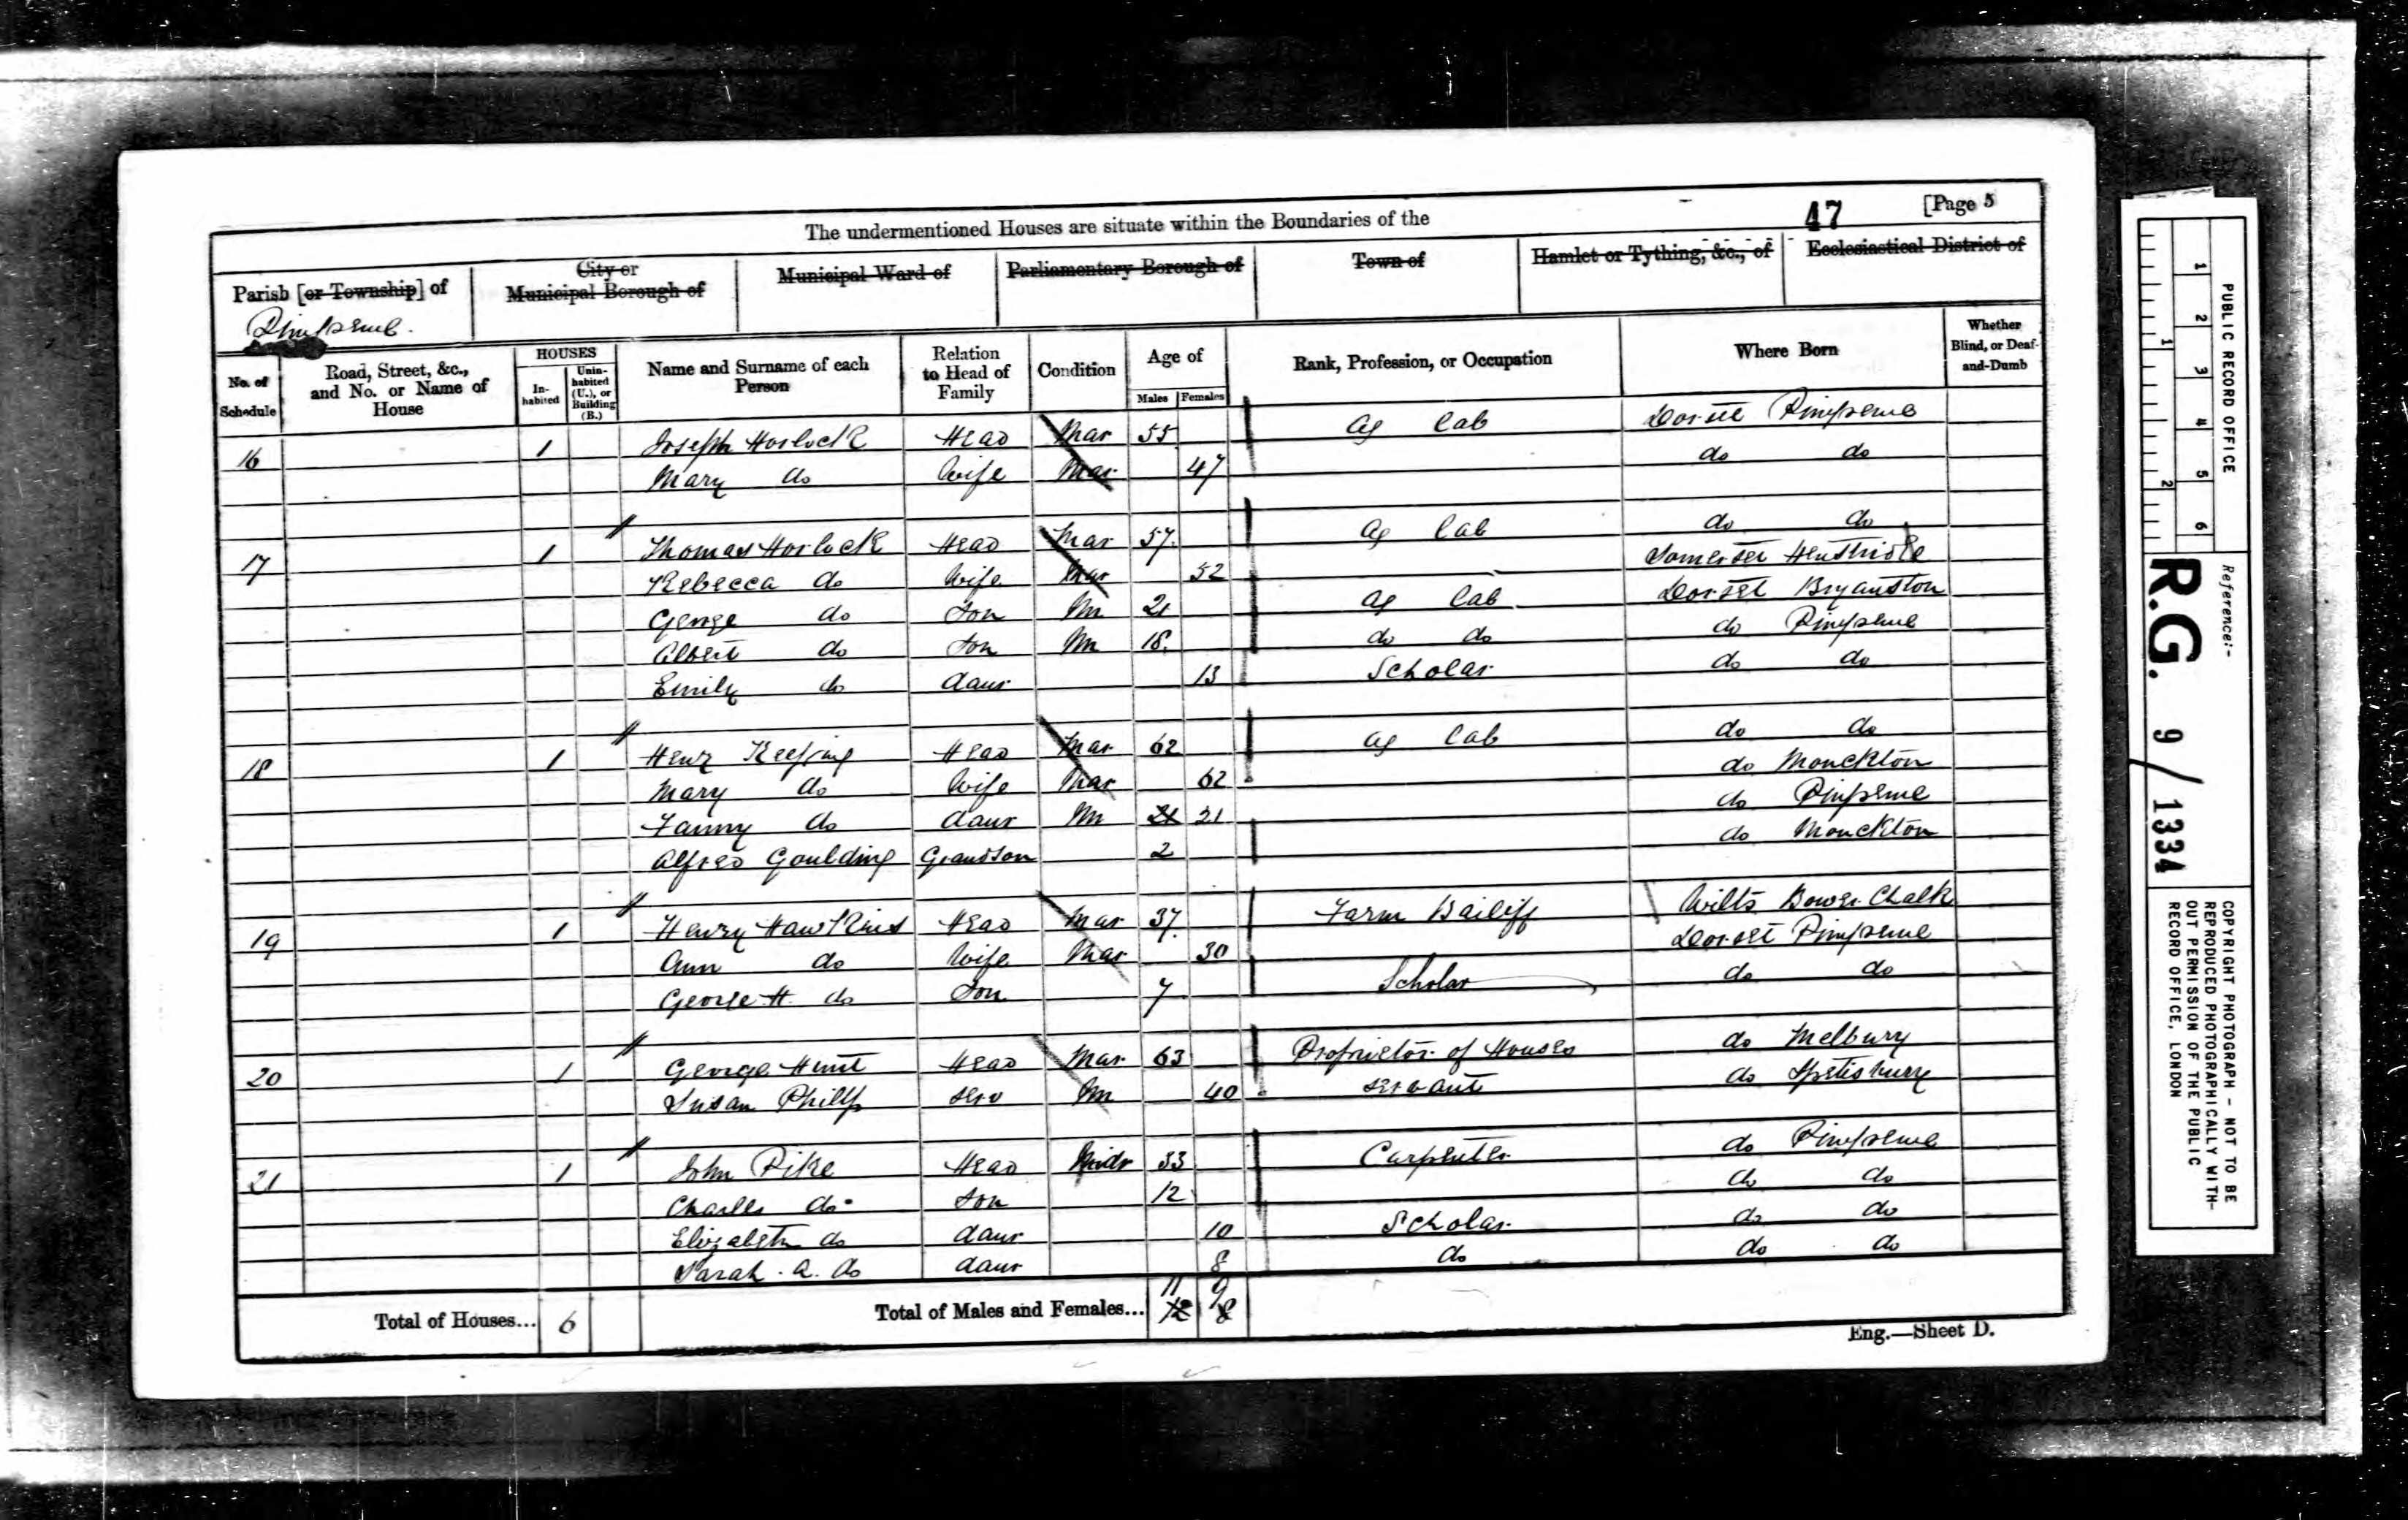 The undermentioned Houses are situate within the Boundaries of the
47 [Page 5
Parish [or Township] of
Pimperne.
City or Municipal Borough of
Municipal Ward of
Parliamentary Borough of
Town of
Hamlet or Tything, &c., of
Ecclesiastical District of
No. of Schedule
Road, Street, &c., and No. or Name of House
HOUSES
In-habited
Unin-habited (U.), or Building (B.)
Name and Surname of each Person
Relation to Head of Family
Condition
Age of
Males Females
Rank, Profession, or Occupation
Where Born
Whether Blind, or Deaf-and-Dumb
16 1 Joseph Horlock Head Mar 55 Ag Lab Dorset Pimperne
Mary do Wife Mar 47 do do
17 1 Thomas Horlock Head Mar 57 Ag Lab do do
Rebecca do Wife Mar 52 Somerset Henstridge
George do Son Un 21 Ag Lab Dorset Bryanston
Albert do Son Un 18 do do do Pimperne
Emily do daur 13 Scholar do do
18 1 Henry Keeping Head Mar 62 Ag Lab do do
Mary do Wife Mar 62 do Monckton
Fanny do daur Un 21 21 do Pimperne
Alfred Goulding Grandson 2 do Monckton
19 1 Henry Hawkins Head Mar 37 Farm Bailiff Wilts Bower Chalk
Ann do Wife Mar 30 Dorset Pimperne
George H. do Son 7 Scholar do do
20 1 George Hunt Head Mar 63 Proprietor of Houses do Melbury
Susan Phillp Serv Un 40 Servant do Spetisbury
21 1 John Pike Head Widr 33 Carpenter do Pimperne
Charles do Son 12 do do
Elizabeth do daur 10 Scholar do do
Sarah A. do daur 8 do do do
11 9
Total of Houses... 6 Total of Males and Females... 12 8
Eng.—Sheet D.
PUBLIC RECORD OFFICE
1 2 3 4 5 6
1 2
Reference:-
R.G. 9 / 1334
COPYRIGHT PHOTOGRAPH - NOT TO BE
REPRODUCED PHOTOGRAPHICALLY WITH-
OUT PERMISSION OF THE PUBLIC
RECORD OFFICE, LONDON